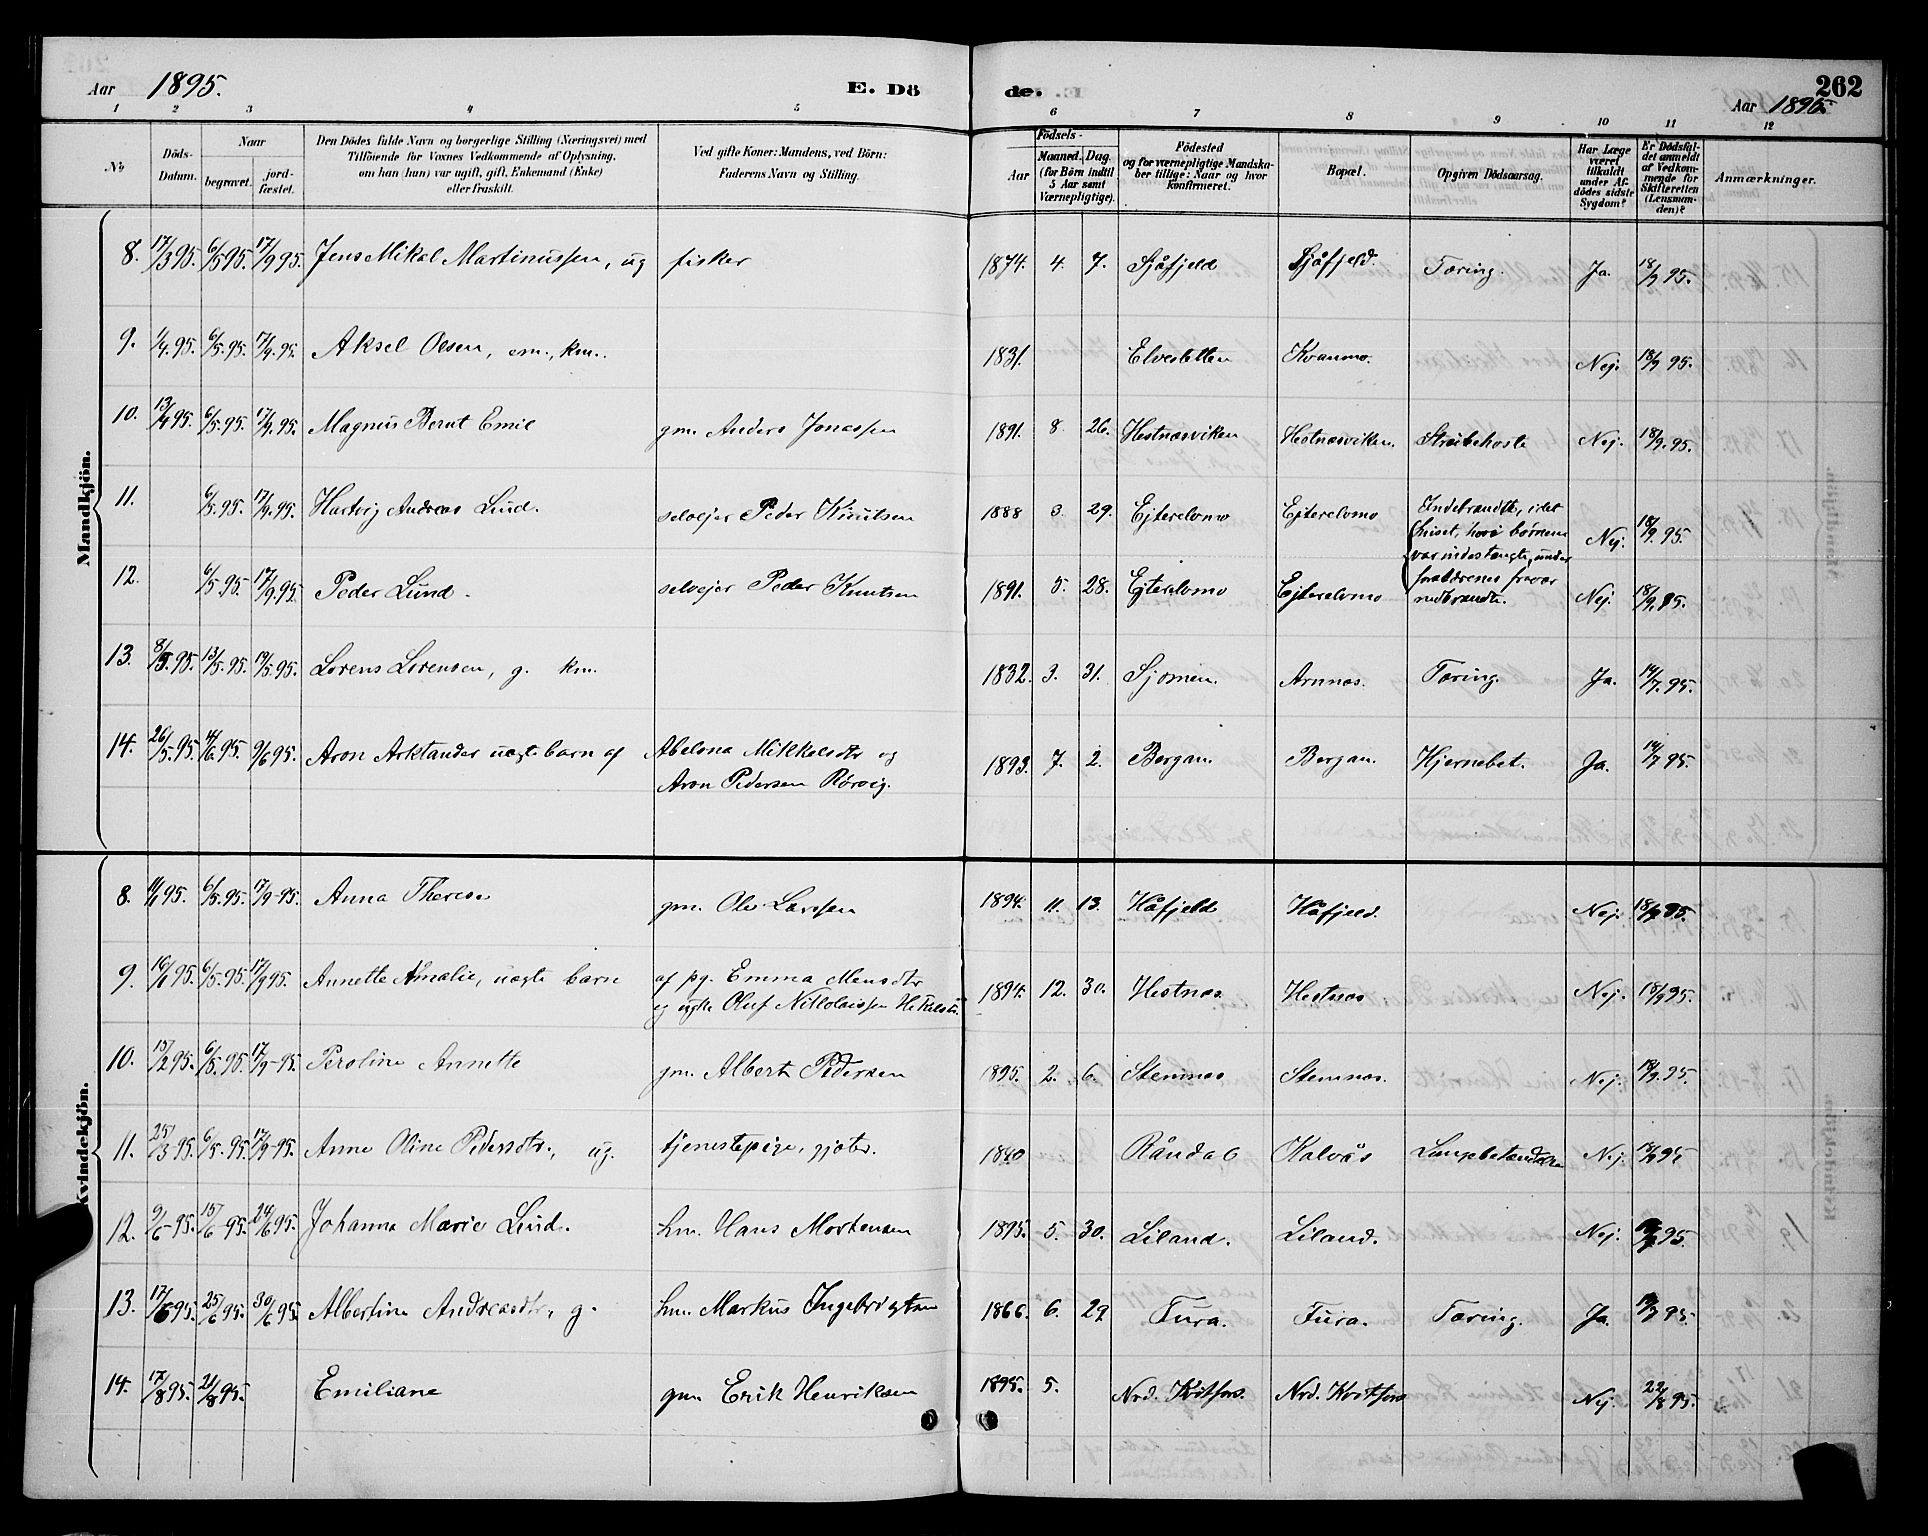 Aar 1895. E. Dö de. 262
Aar 1895.
1 2 3 4 5 6 7 8 9 10 11 12
No
Döds-Datum.
Naar
begravet.
jord-fæstet.
Den Dödes fulde Navn og borgerlige Stilling (Næringsvei) med
Tilföiende for Voxnes Vedkommende af Oplysning,
om han (hun) var ugift, gift, Enkemand (Enke)
eller fraskilt.
Ved gifte Koner: Mandens, ved Börn:
Faderens Navn og Stilling.
Födsels-
Aar
Maaned. Dag.
(for Börn indtil
5 Aar samt
Værnepligtige).
Födested
og for værnepligtige Mandska-
ber tillige: Naar og hvor
konfirmeret.
Bopæl.
Opgiven Dödsaarsag.
Har Læge
været
tilkaldt
under Af-
dödes sidste
Sygdom?
Er Dödsfal-
det anmeldt
af Vedkom-
mende for
Skifteretten
(Lensman-
den)?
Anmærkninger.
Mandkjön.
8. 17/3 95. 6/5 95. 17/9 95. Jens Mikal Martinussen, ug fisker 1874. 4. 7. Sjåfjeld Sjåfjeld. Tæring. Ja. 18/9 95.
9. 1/4. 95. 6/5. 95. 17/9. 95. Aksel Olsen, em., km. 1831. Elvesletten Kvanmo. Nej. 18/9 95.
10. 13/4 95. 6/5. 95. 17/9. 95. Magnus Bernt Emil gm. Anders Jonassen 1891. 8. 26. Hestnæsviken Hestnæsviken. Strubehoste Nej. 18/9. 95.
11. 6/5. 95. 17/9. 95. Hartvig Andreas Lund. selvejer Peder Knutsen 1888 3. 29. Ejterelvmo Ejterelvmo Indebrandte, idet
huset, hvori børnene
var indestængte, under
forældrenes fravær
nedbrandte. Nej. 18/9. 95.
12. 6/5. 95. 17/9. 95. Peder Lund. selvejer Peder Knutsen 1891. 5. 28. Ejterelvmo Ejterelvmo Nej. 18/9. 95.
13. 8/5. 95. 13/5. 95. 19/5. 95. Lorens Lorensen, g. km. 1832. 3. 31. Sjomen. Arnnæs. Tæring. Ja. 14/7. 95.
14. 26/5. 95. 4/6. 95. 9/6 95. Aron Arktander uægte barn af Abelona Mikkelsdtr og
Aron Pedersen Rørvig. 1893. 7. 2. Bergan. Bergan. Hjernebet. Ja. 14/7 95.
Kvindekjön.
8. 11/1 95. 6/5. 95. 17/9-95. Anna Therese gm. Ole Larssen 1894. 11. 13. Håfjeld Håfjeld. Nej. 18/9 95.
9. 16/1 95. 6/5-95. 17/9 95. Annette Amalie, uægte barn af pg. Emma Monsdtr
og ugkl Oluf Nikolaissen 1894. 12. 30. Hestnæs Hestnæs Nej. 18/9 95.
10. 15/2 95. 6/5. 95. 17/9-95. Peroline Annette gm. Albert Pedersen 1895. 2. 6. Stemnæs Stemnæs. Nej. 18/9. 95.
11. 25/3 95. 6/5. 95. 17/9-95. Anne Oline Pedersdtr., ug. tjenestepige, gjøter. 1840 Råndal Kalvås Lungebetændelse Nej. 95
12. 9/6-95. 15/6-95. 24/6 95. Johanna Marie Lund. hm. Hans Mortensen 1895. 5. 30. Liland. Liland. Nej. 95.
13. 17/6 95. 25/6 95. 30/6 95. Albertine Andreasdtr, g. hm. Markus Ingebrigtsen 1866. 6. 29 Fura. Fura. Tæring. Ja. 95.
14. 17/8 95. 21/8 95. Emiliane gm. Erik Henriksen 1895. 5. Nrd. Kvitfors. Nrd. Kvitfors Nej. 22/8 95.